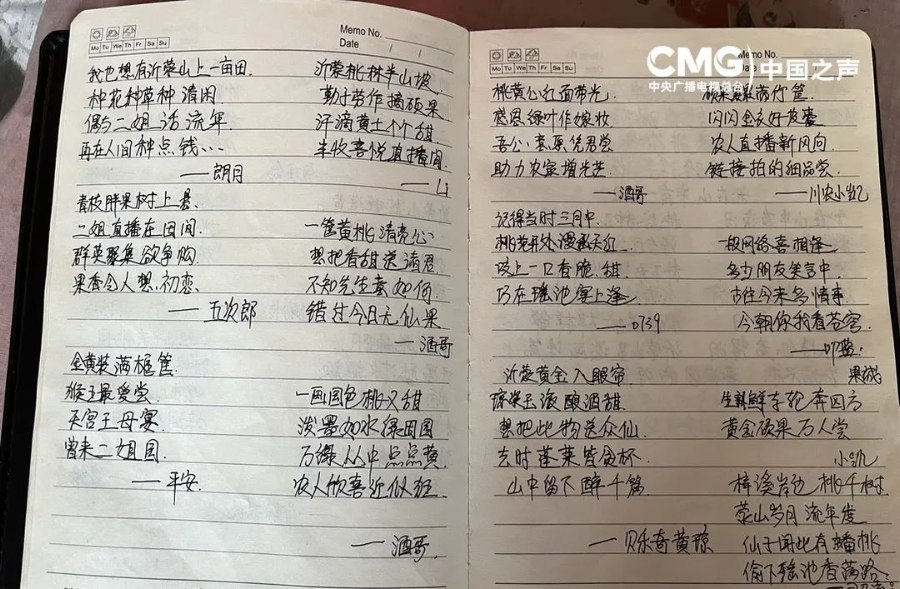 Memo No.
Date / /
Mo Tu We Th Fr Sa Su
我也想有沂蒙山上一亩田.
种花种草种清闲
偶与二姐话流年
再在人间种点钱…
——朗月
青枝胖果树上悬.
二姐直播在田间.
群英聚集欲争购
果香令人想初恋
——五次郎
金黄装满桃筐
猴王最爱尝
天宫王母宴
曾来二姐园.
——平安.
沂蒙桃林半山坡
勤于劳作摘硕果
汗滴黄土个个甜
丰收喜悦直播间
——山
一筐黄桃清亮心
想把香甜送诸君.
不知先生喜如何.
错过今日无仙果
——酒哥
一画国色桃又甜
泼墨如水绿田园
万绿丛中点点黄
农人欣喜近似狂
——酒哥.
CMG 中国之声
中央广播电视总台
Memo No.
Date
Mo Tu We Th Fr Sa Su
桃黄公主面带光
感恩绿叶作嫁妆
吾公
助力农家增光芒
——酒哥
记得当时三月中.
桃花开处漫
咬上一口香脆甜
巧在瑶池宴上逢
——0739
沂蒙黄金入眼帘
琼浆玉液酿酒甜
想把此物送众仙
去时蓬莱皆贪杯.
山中留下醉千篇
——贝乐奇黄琼
筐
闪闪金衣好
农人直播新风向
链接拍的细品尝
——川农小凯
一根网络喜相逢
多少朋友笑言中
古往今来多情事
今朝你我看苍穹.
生鲜车轮奔四方
黄金硕果万人尝
小凯
梓溪岸边桃千树
蒙山岁月流年度
仙子闻此有蟠桃
偷下瑶池香满路.